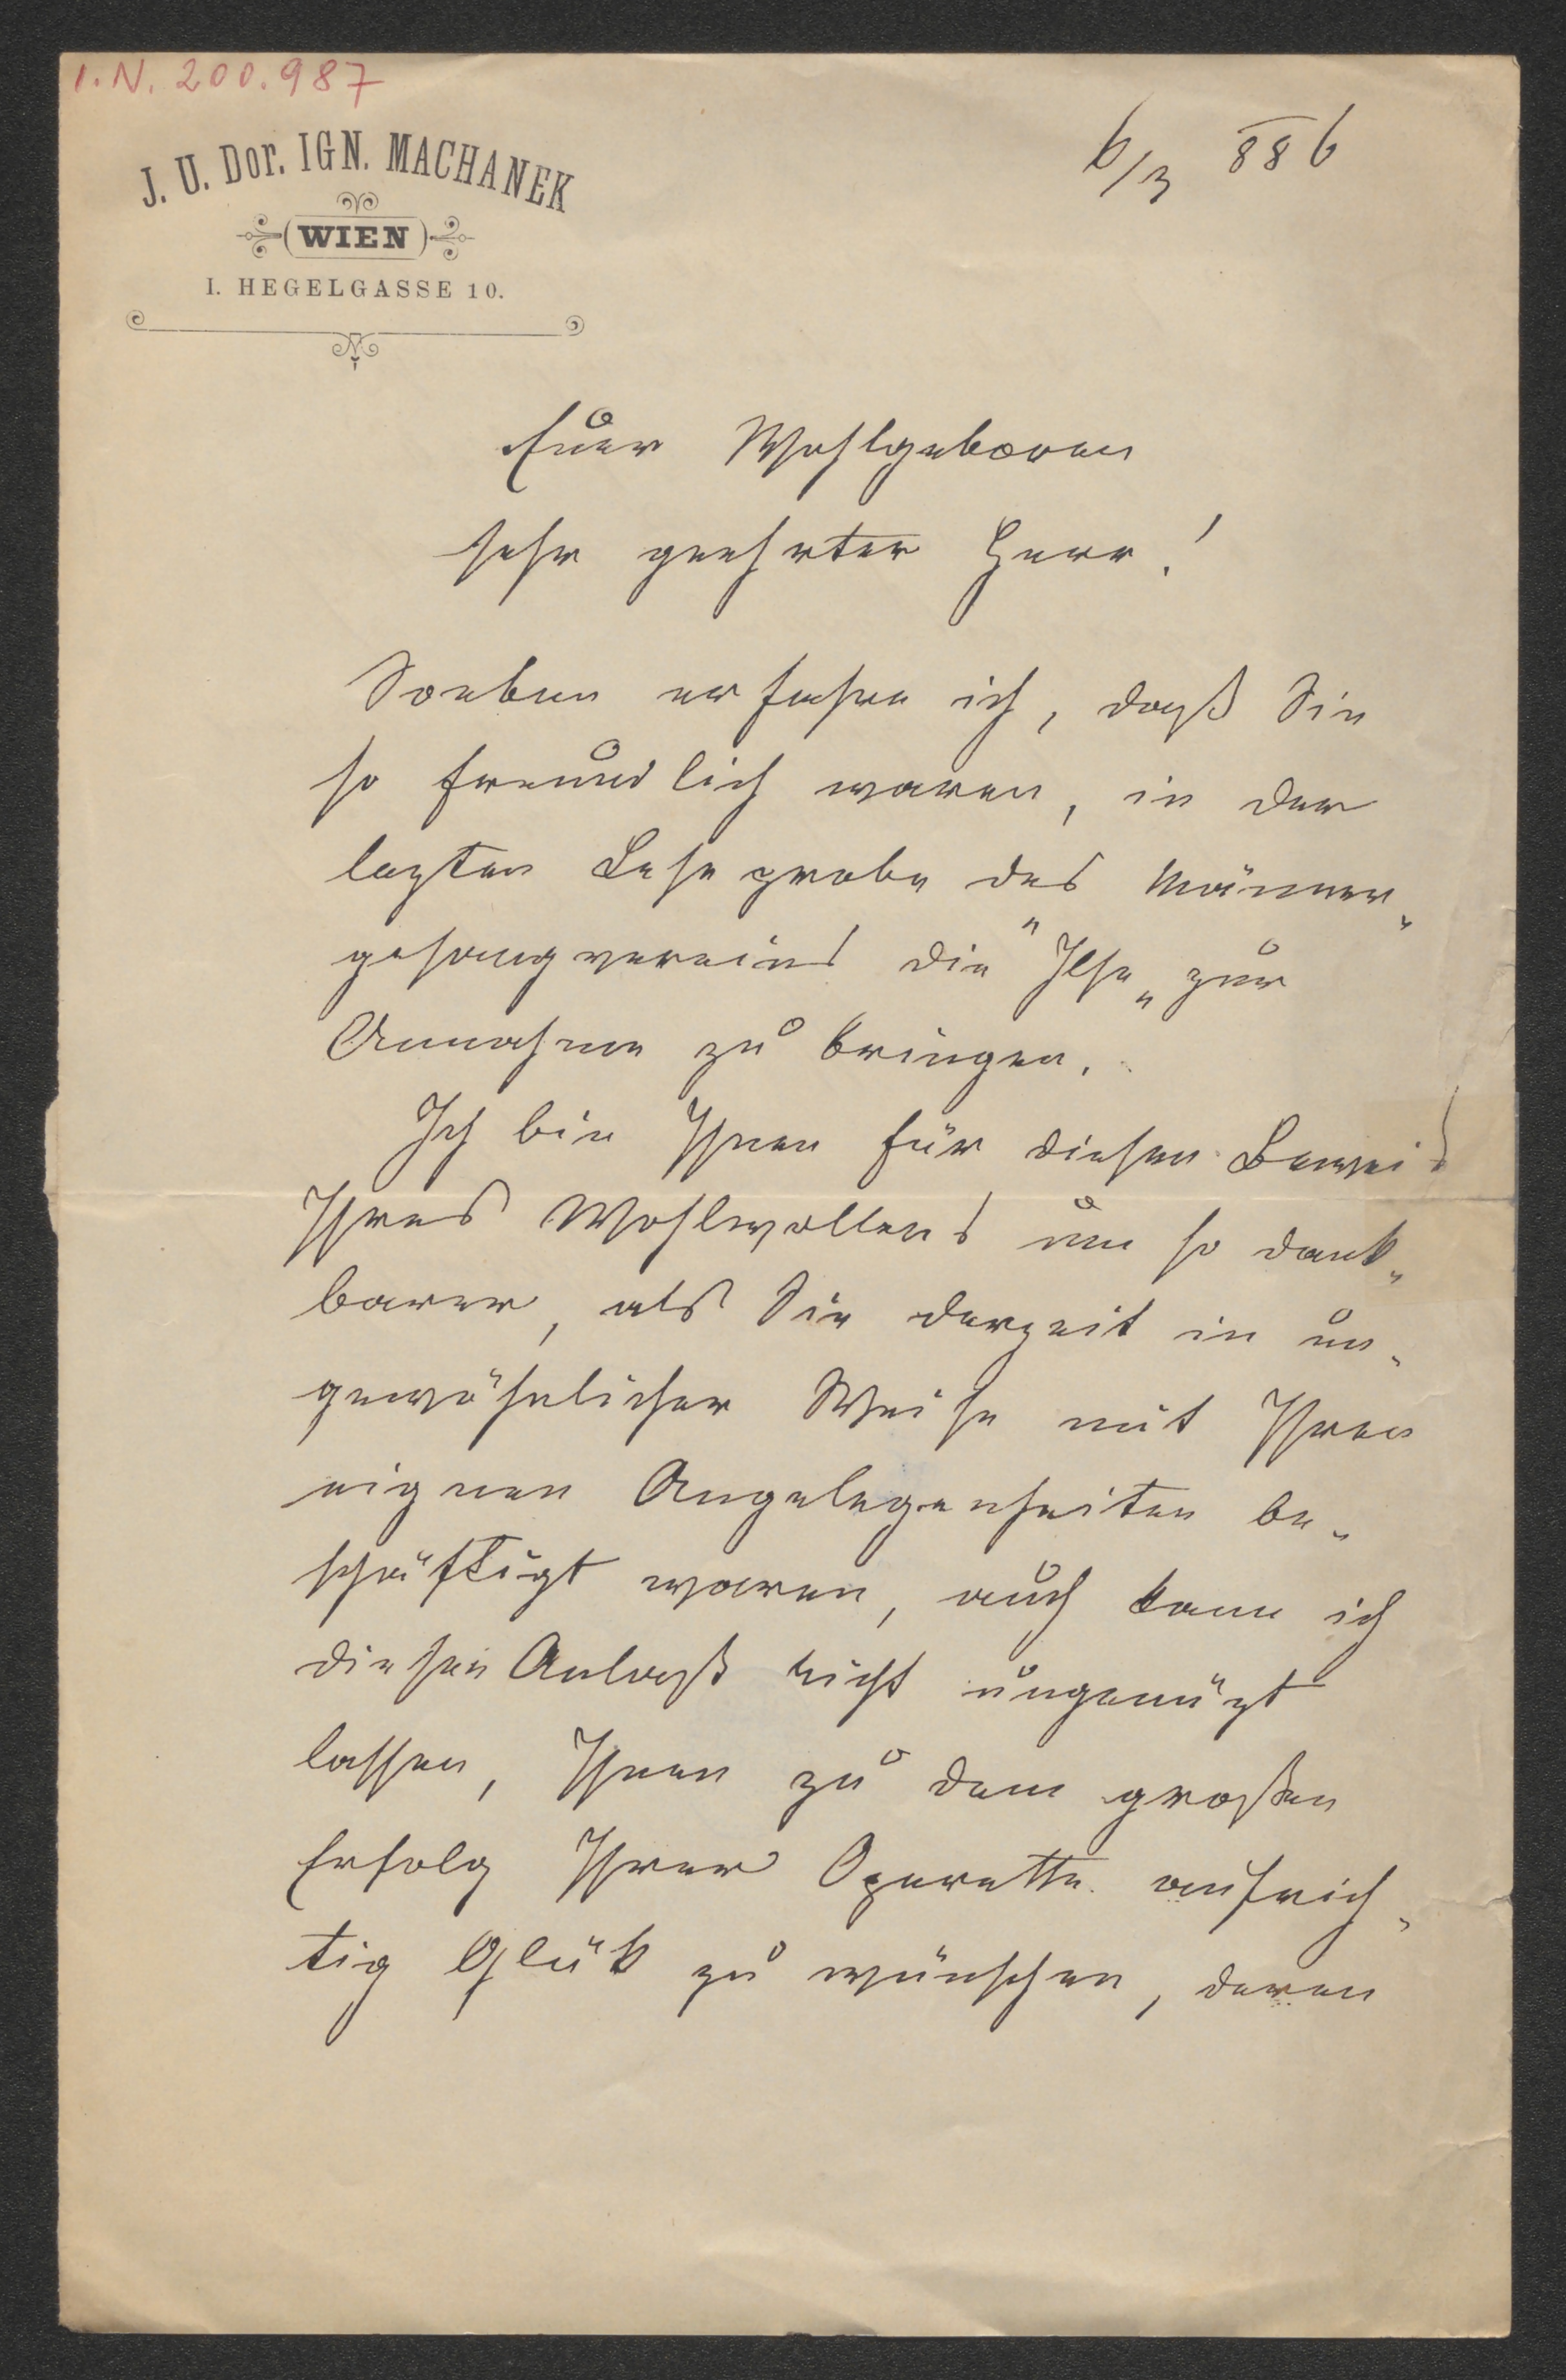 I.N. 200.987
J. U. Dor. IGN. MACHANEK
WIEN
I. HEGELGASSE 10.
6/3 886
Euer Wohlgeboren
sehr geehrter Herr!
Soeben erfahre ich, daß Sie
so freundlich waren, in der
lezten Leseprobe des Männer„
gesangvereins die "Ilse„ zur
Annahme zu bringen.
Ich bin Ihnen für diesen Beweis
Ihres Wohlwollens um so dank„
barer, als Sie derzeit in un„
gewöhnlicher Weise mit Ihren
eignen Angelegenheiten be„
schäftigt waren, auch kann ich
diesen Anlaß nicht ungenüzt
lassen, Ihnen zu dem großen
Erfolg Ihrer Operette aufrich„
tig Glük zu wünschen, deren